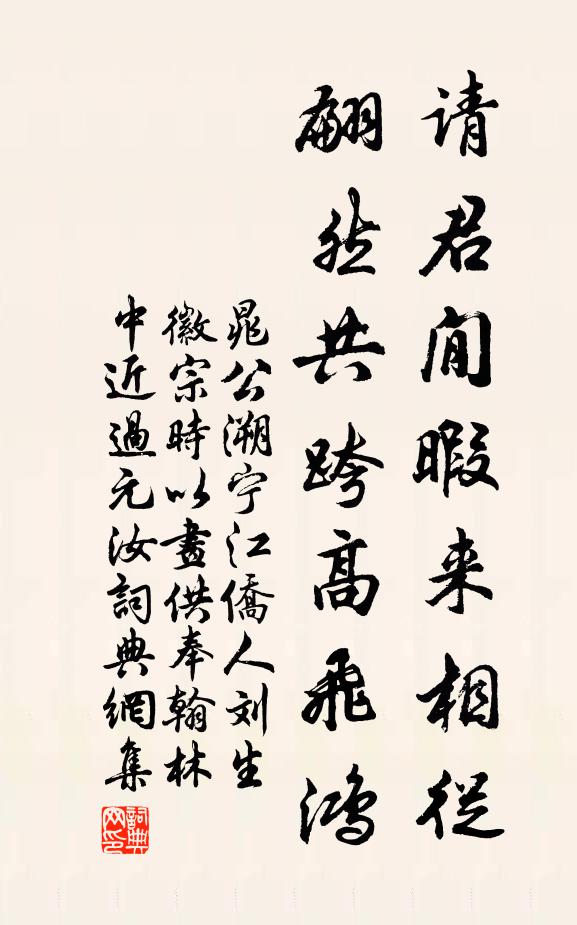 请君闲暇来相從
翩然共跨高飛鴻
晁公溯宁江僑人刘生
徽宗時以畫供奉翰林
中近過元汝詞典網集
詞典网印